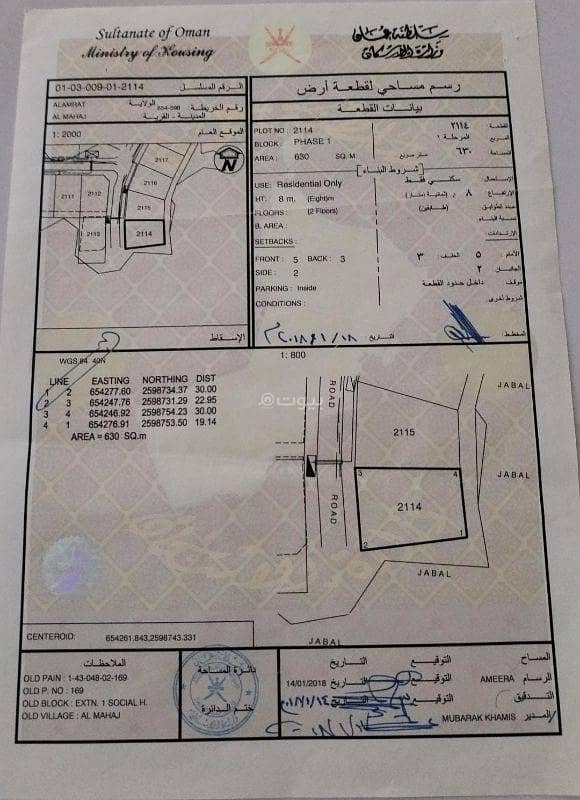 Sultanate of Oman
Ministry of Housing
سلطنة عمان
وزارة الإسكان
الرقم المسلسل 01-03-009-01-2114
ALAMRAT الولاية رقم الخريطة
AL MAHAJ المدينة - القرية
1: 2000 الموقع العام
2117
2116
2115
2114
2111
2112
2113
N
الإسقاط
رسم مساحي لقطعة أرض
بيانات القطعة
PLOT NO : 2114 ٢١١٤ القطعة
BLOCK : PHASE 1 المرحلة ١ المربع
AREA : 630 SQ. M متر مربع ٦٣٠ المساحة
شروط البناء
USE: Residential Only سكني فقط الإستعمال
HT: 8 m. (Eight)m ٨ الإرتفاع
FLOORS : (2 Floors) (طابقين) عدد الطوابق
B. AREA : نسبة البناء
SETBACKS : الإرتدادات
FRONT : 5 BACK : 3 ٣ الخلف ٥ الأمام
SIDE : 2 ٢ الجانبين
PARKING : Inside داخل حدود القطعة موقف
CONDITIONS : شروط أخرى
المخطط التاريخ
1: 800
WGS 84 40N
LINE EASTING NORTHING DIST
1 2 654277.60 2598734.37 30.00
2 3 654247.76 2598731.29 22.95
3 4 654246.92 2598754.23 30.00
4 1 654276.91 2598753.50 19.14
AREA = 630 SQ.m
بيوت
ROAD
ROAD
JABAL
2115
JABAL
3
4
2114
1
2
JABAL
JABAL
JABAL
CENTEROID: 654261.843,2598743.331
الملاحظات
OLD PAIN : 1-43-048-02-169
OLD P. NO : 169
OLD BLOCK : EXTN. 1 SOCIAL H.
OLD VILLAGE : AL MAHAJ
دائرة المساحة
ختم الدائرة
المساح التوقيع التاريخ
الرسام AMEERA التوقيع التاريخ 14/01/2018
التدقيق التوقيع التاريخ
المدير MUBARAK KHAMIS